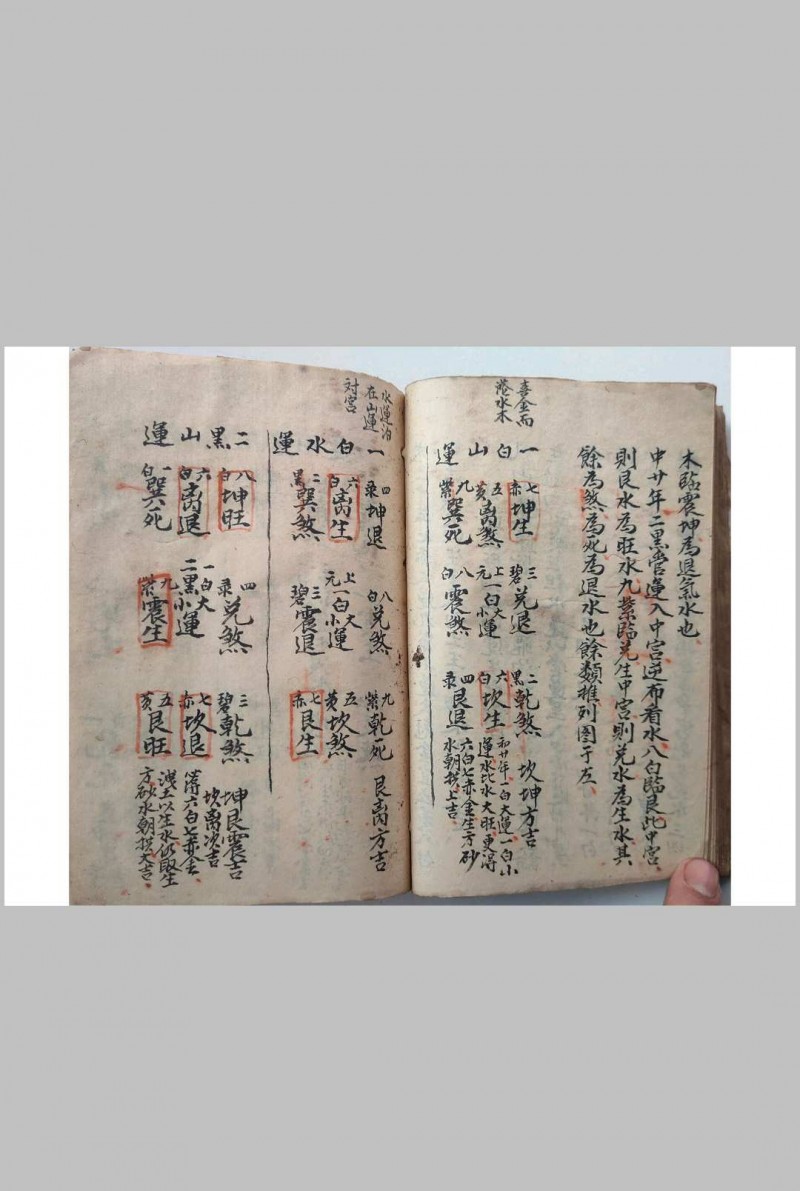 木臨震坤為退氣水也
中廿年二黑管運入中宮逆布看水八白臨艮比中宮
則艮水為旺水九紫臨兑生中宮則兑水為生水其
餘為煞為死為退水也餘類推列圖于左
喜金而
一白山運
七赤坤生
五黄离煞
九紫巽死
三碧兑退
上元一白大小運
八白震煞
二黑乾煞
六白坎生
四彔艮退
坎坤方吉
初廿年一白大運一白小
運水比水大旺更得
六白七赤金生方砂
水朝拱上吉
水運泊
在山運
対宮
一白水運
四彔坤退
六白离生
二黑巽煞
八白兑煞
上元一白大小運
三碧震退
九紫乾死
五黄坎煞
七赤艮生
艮离方吉
二黑山運
八白坤旺
六白离退
一白巽死
四彔兑煞
一白大
二黑小運
九紫震生
三碧乾煞
七赤坎退
五黄艮旺
坤艮震吉
坎离次吉
六白七赤金
洩土以生水仍取生
方砂水朝拱大吉